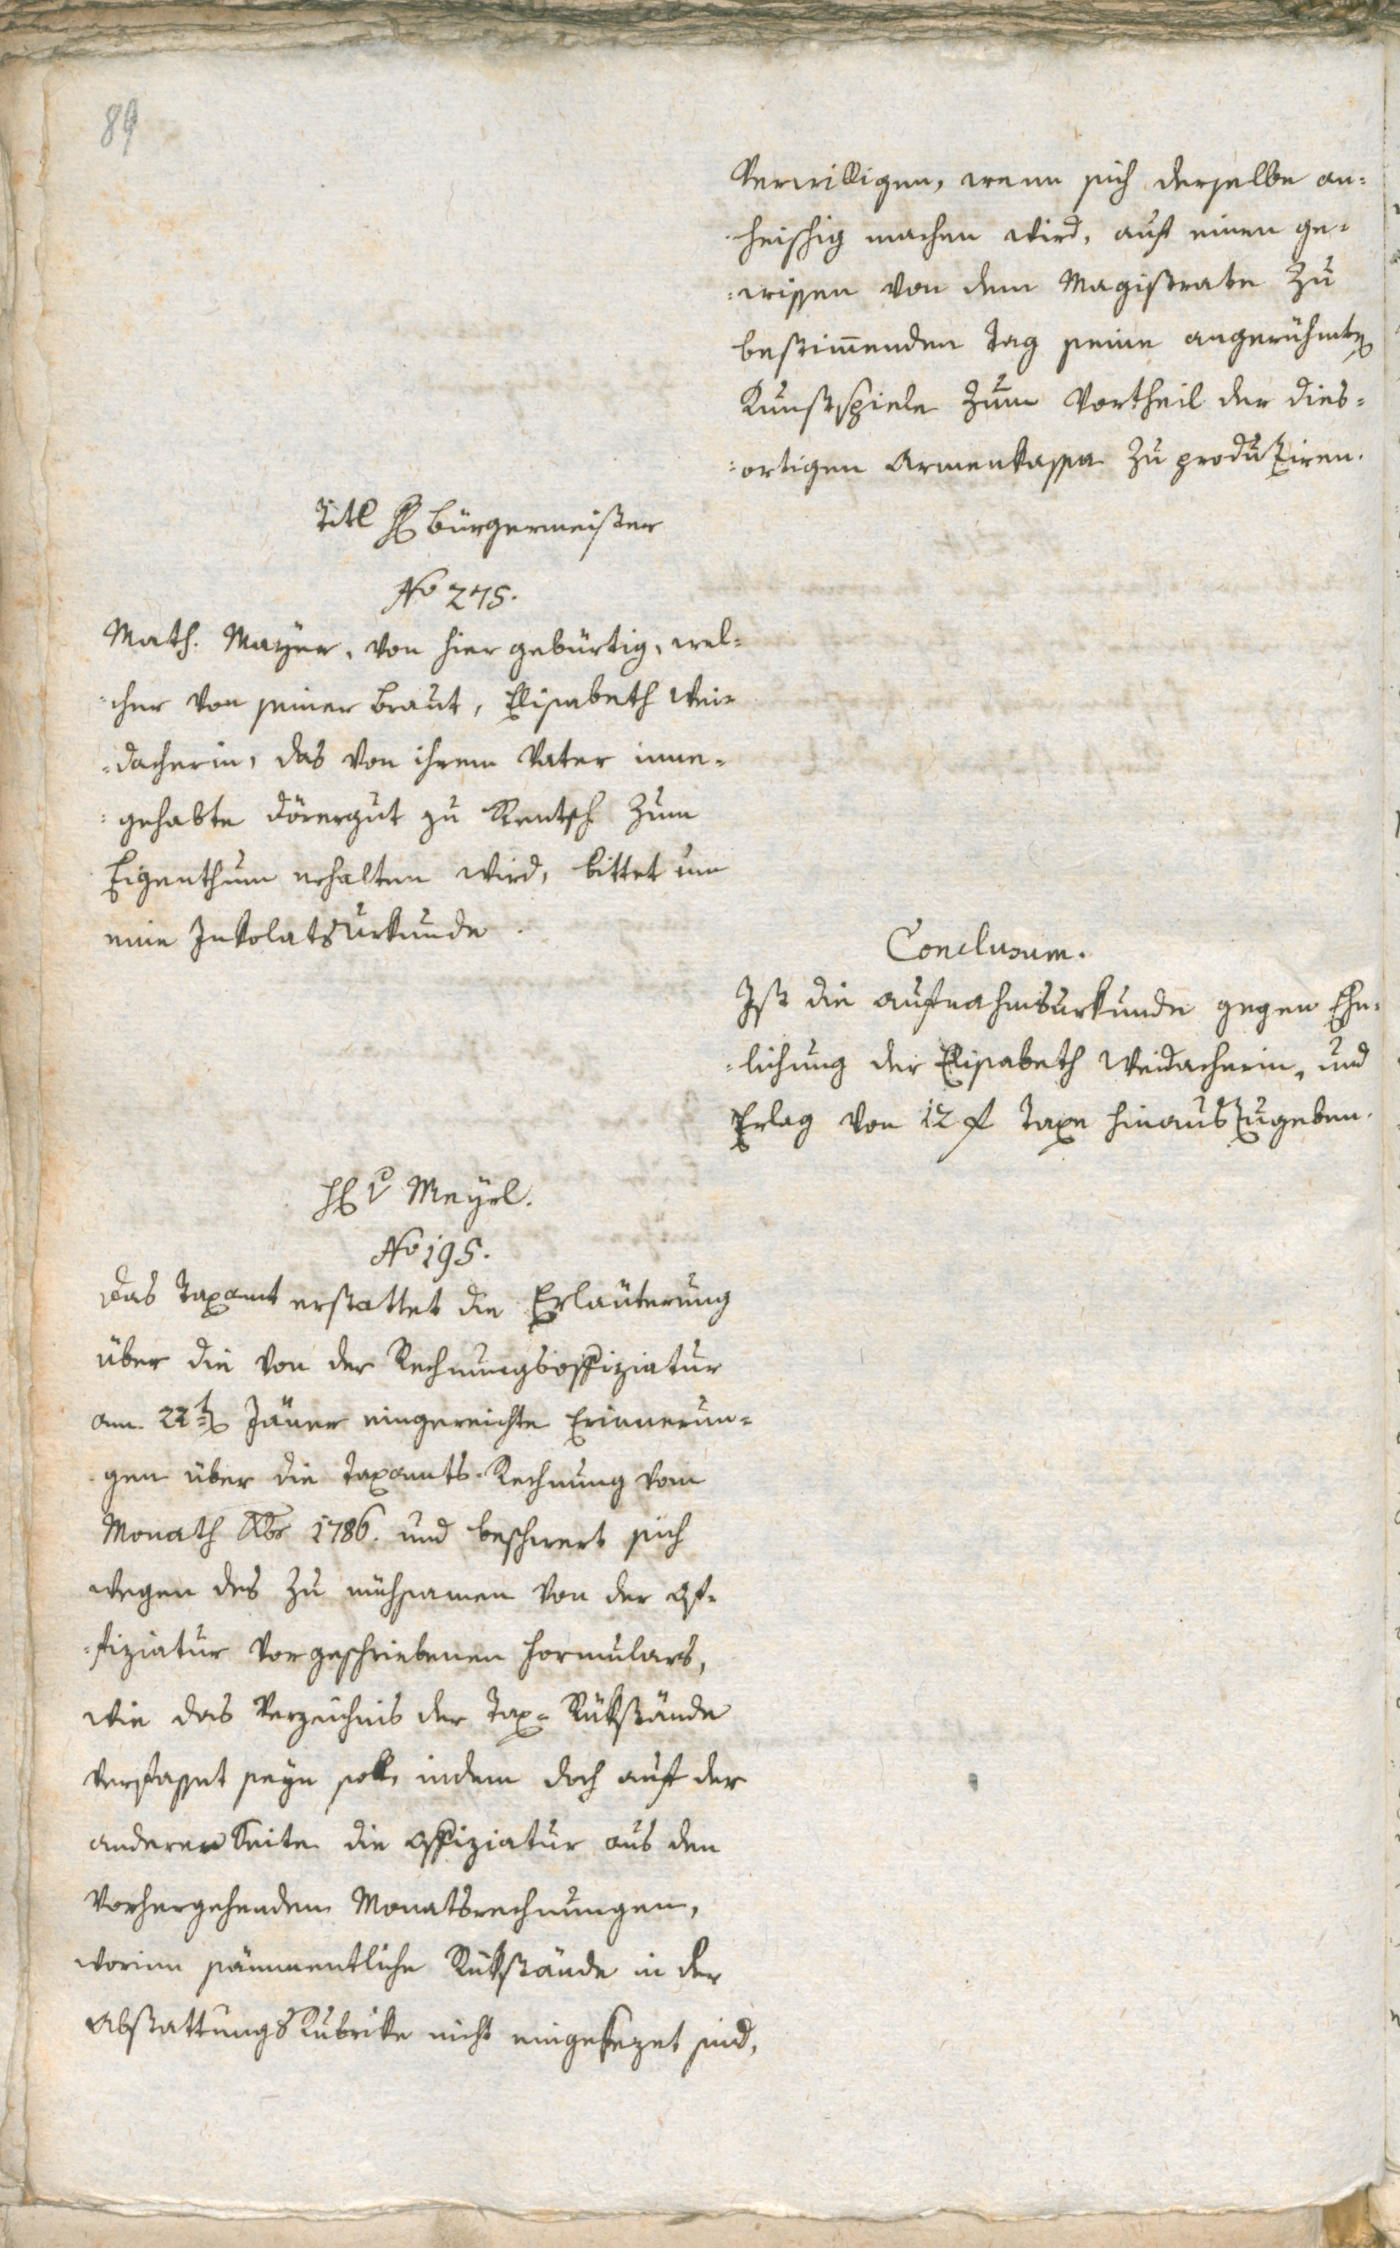 89
Verwilligen, wenn sich derselbe an¬
heischig machen wird, auf einen ge¬
:wissen von dem Magistrate zu
bestim̄enden Tag seine angerühmte
Kunstspiele zum Vortheil der dies¬
:ortigen Armenkassa zu produziren.
Titl H Bürgermeister
No 275.
Math. Mayer, von hier gebürtig, wel¬
:cher von seiner Braut, Elisabeth Wei¬
:dacherin, das von ihrem Vater inne¬
:gehabte Dörergut zu Rentsch zum
Eigenthum erhalten wird, bittet um
eine Inkolatsurkunde.
Conclusum.
Ist die Aufnahmsurkunde gegen Ehe¬
:lichung der Elisabeth Weidacherin, und
Erlag von 12 f Taxe hinauszugeben.
H v Meyrl.
No 195.
Das Taxamt erstattet die Erläuterung
über die von der Rechnungsoffiziatur
am 22ten Jäner eingereichte Erinnerun¬
gen über die Taxamts-Rechnung vom
Monath Xbr 1786. und beschwert sich
wegen des zu mühsamen von der Of¬
:fiziatur vorgeschriebenen Formulars,
wie das Verzeichnis der Tax-Rükstände
verfasset seyn soll, indem doch auf der
anderen Seite die Offiziatur aus den
vorhergehenden Monatsrechnungen,
worinn sämmentliche Rükstände in der
Abstattungs Rubrike nicht eingesezet sind,